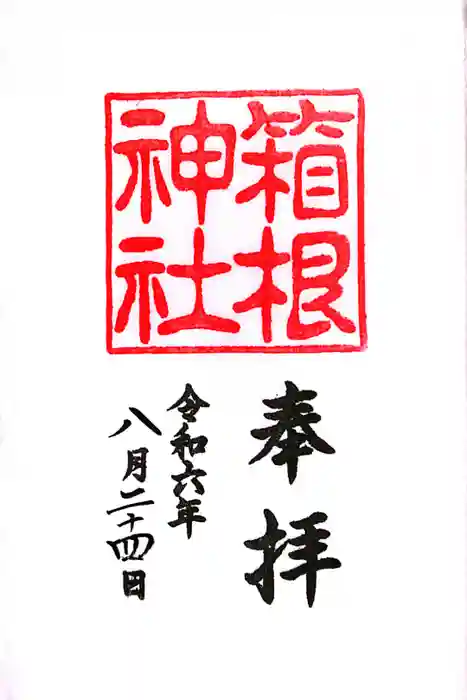 箱根
神社
奉拝
令和六年
八月二十四日